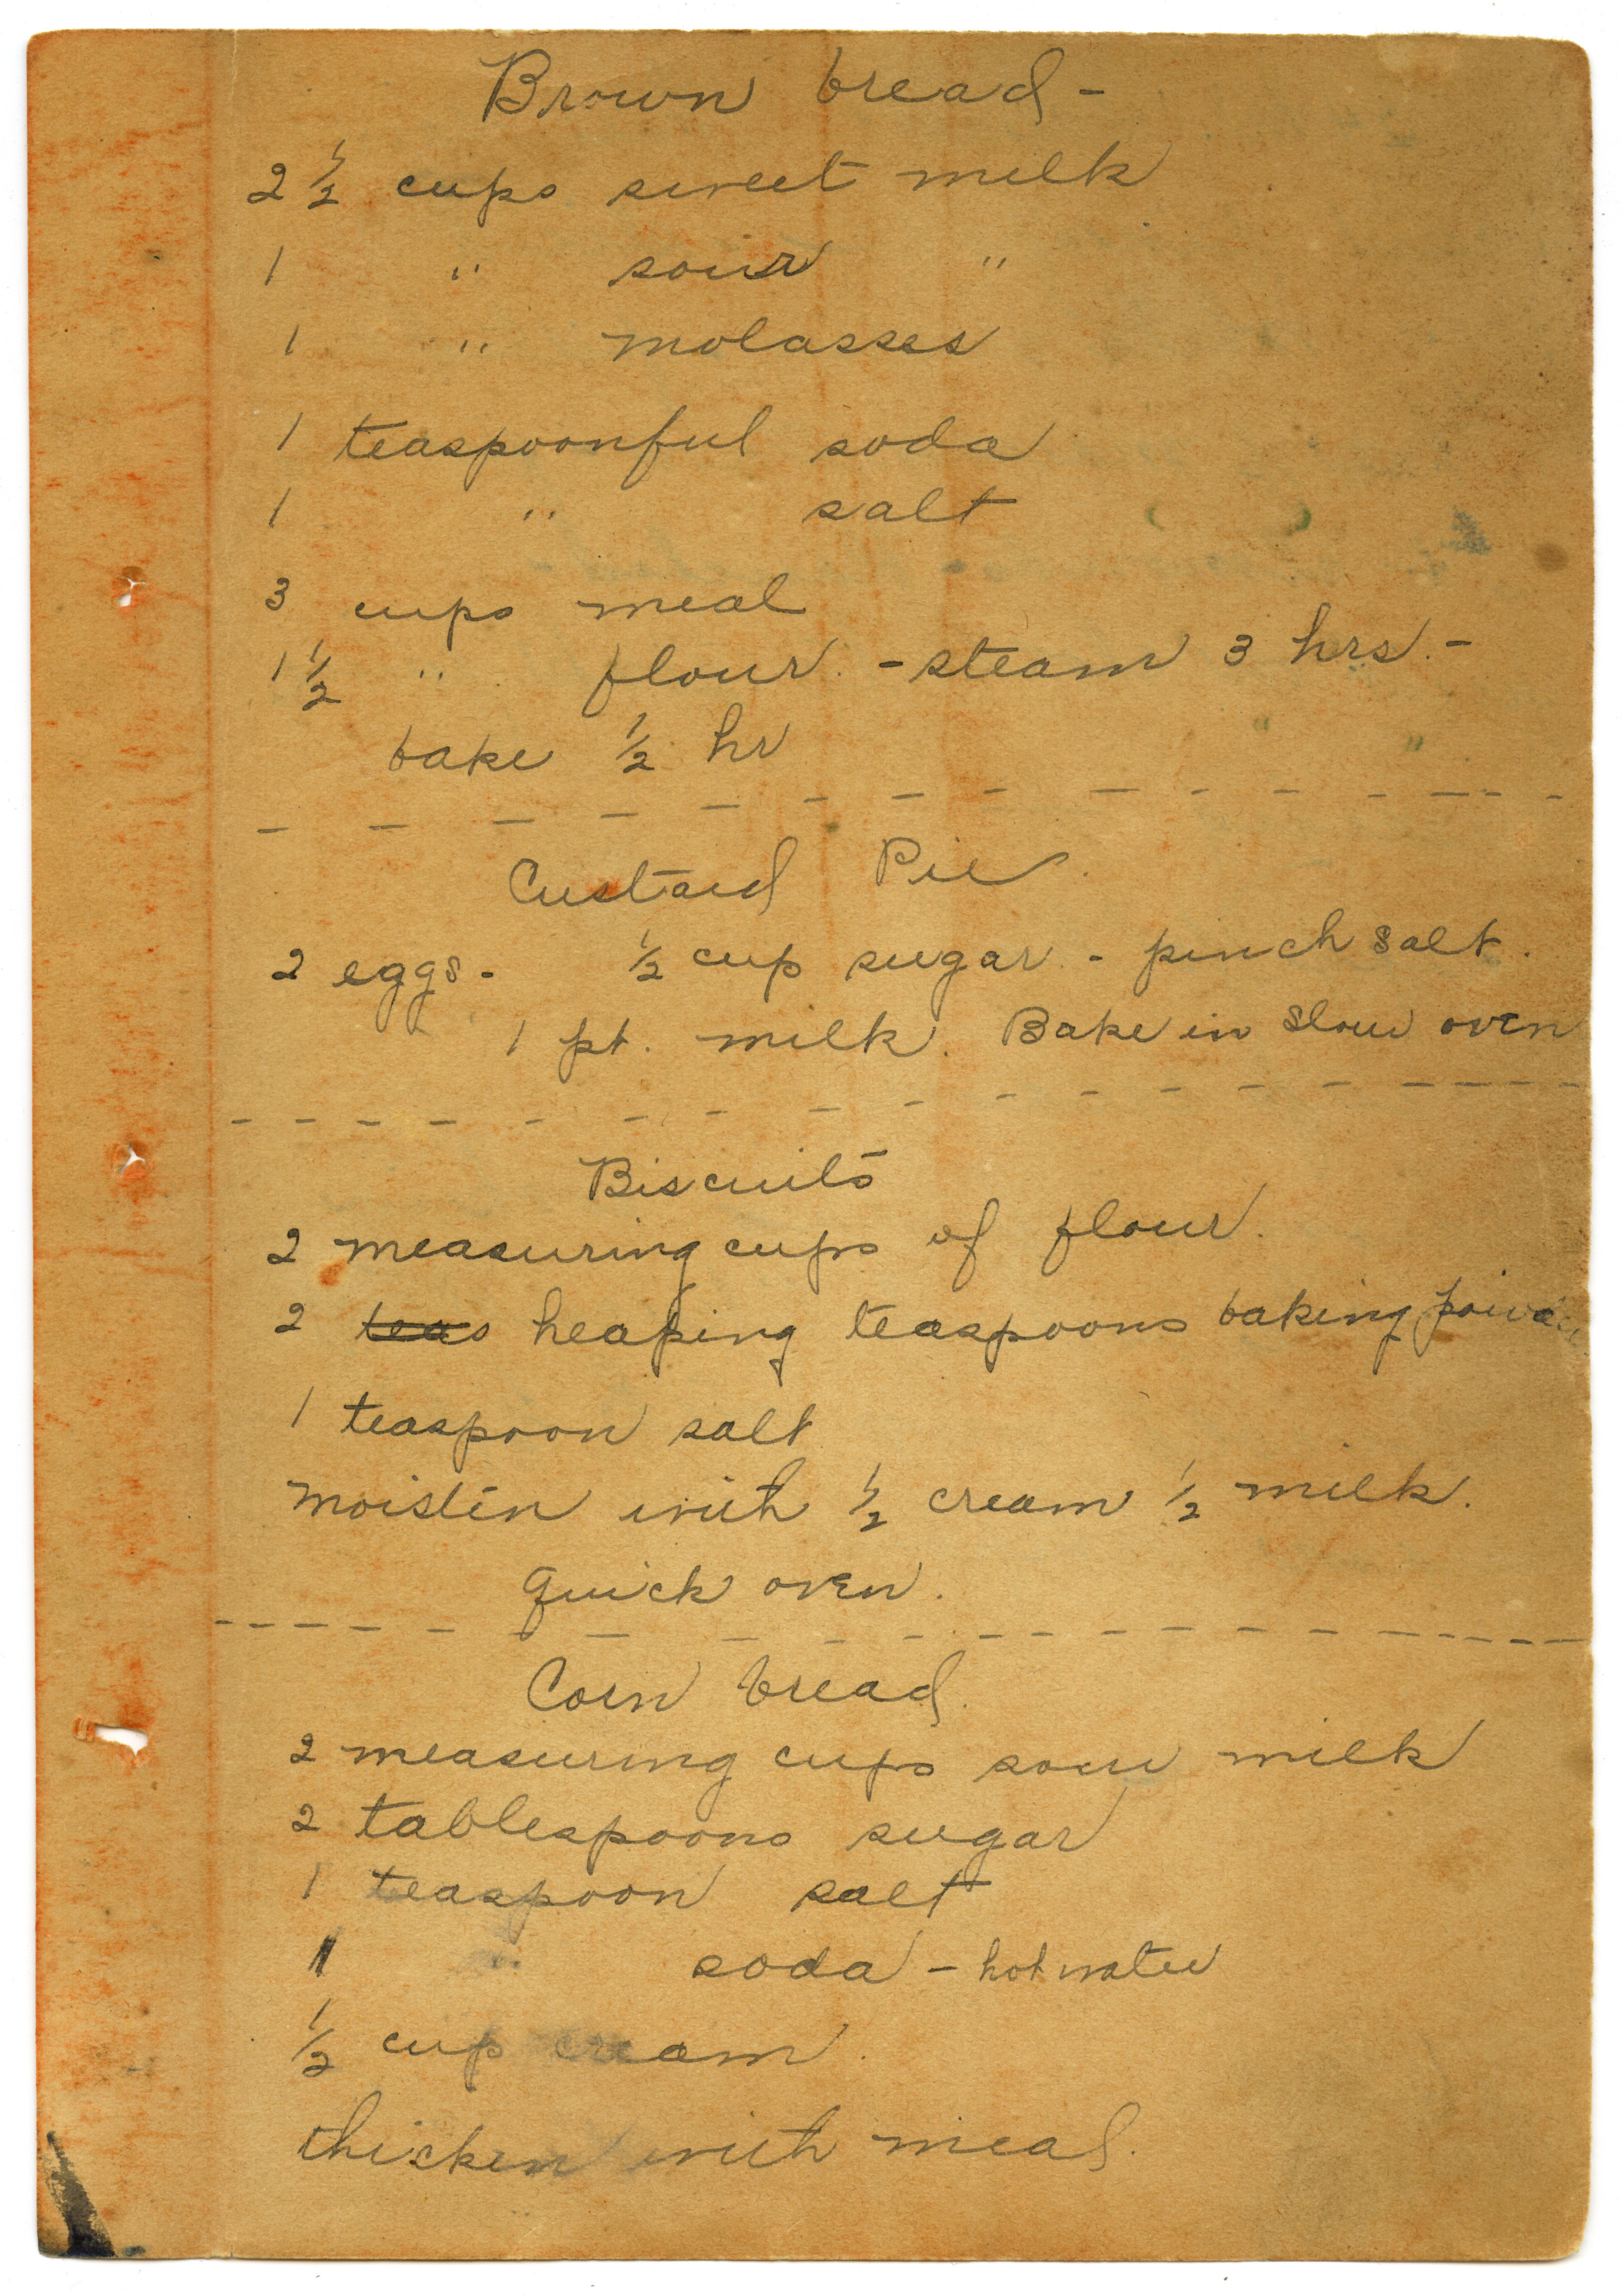 Brown bread -
2 1/2 cups sweet milk
1 " sour "
1 " molasses
1 teaspoonful soda
1 " salt
3 cups meal
1 1/2 " flour. - steam 3 hrs. -
bake 1/2 hr
Custard Pie.
2 eggs - 1/2 cup sugar - pinch salt.
1 pt. milk. Bake in slow oven
Biscuits
2 measuring cups of flour.
2 teas heaping teaspoons baking powder
1 teaspoon salt
moisten with 1/2 cream 1/2 milk.
quick oven.
Corn bread.
2 measuring cups sour milk
2 tablespoons sugar
1 teaspoon salt
1 " soda - hot water
1/2 cup cream.
thicken with meal.